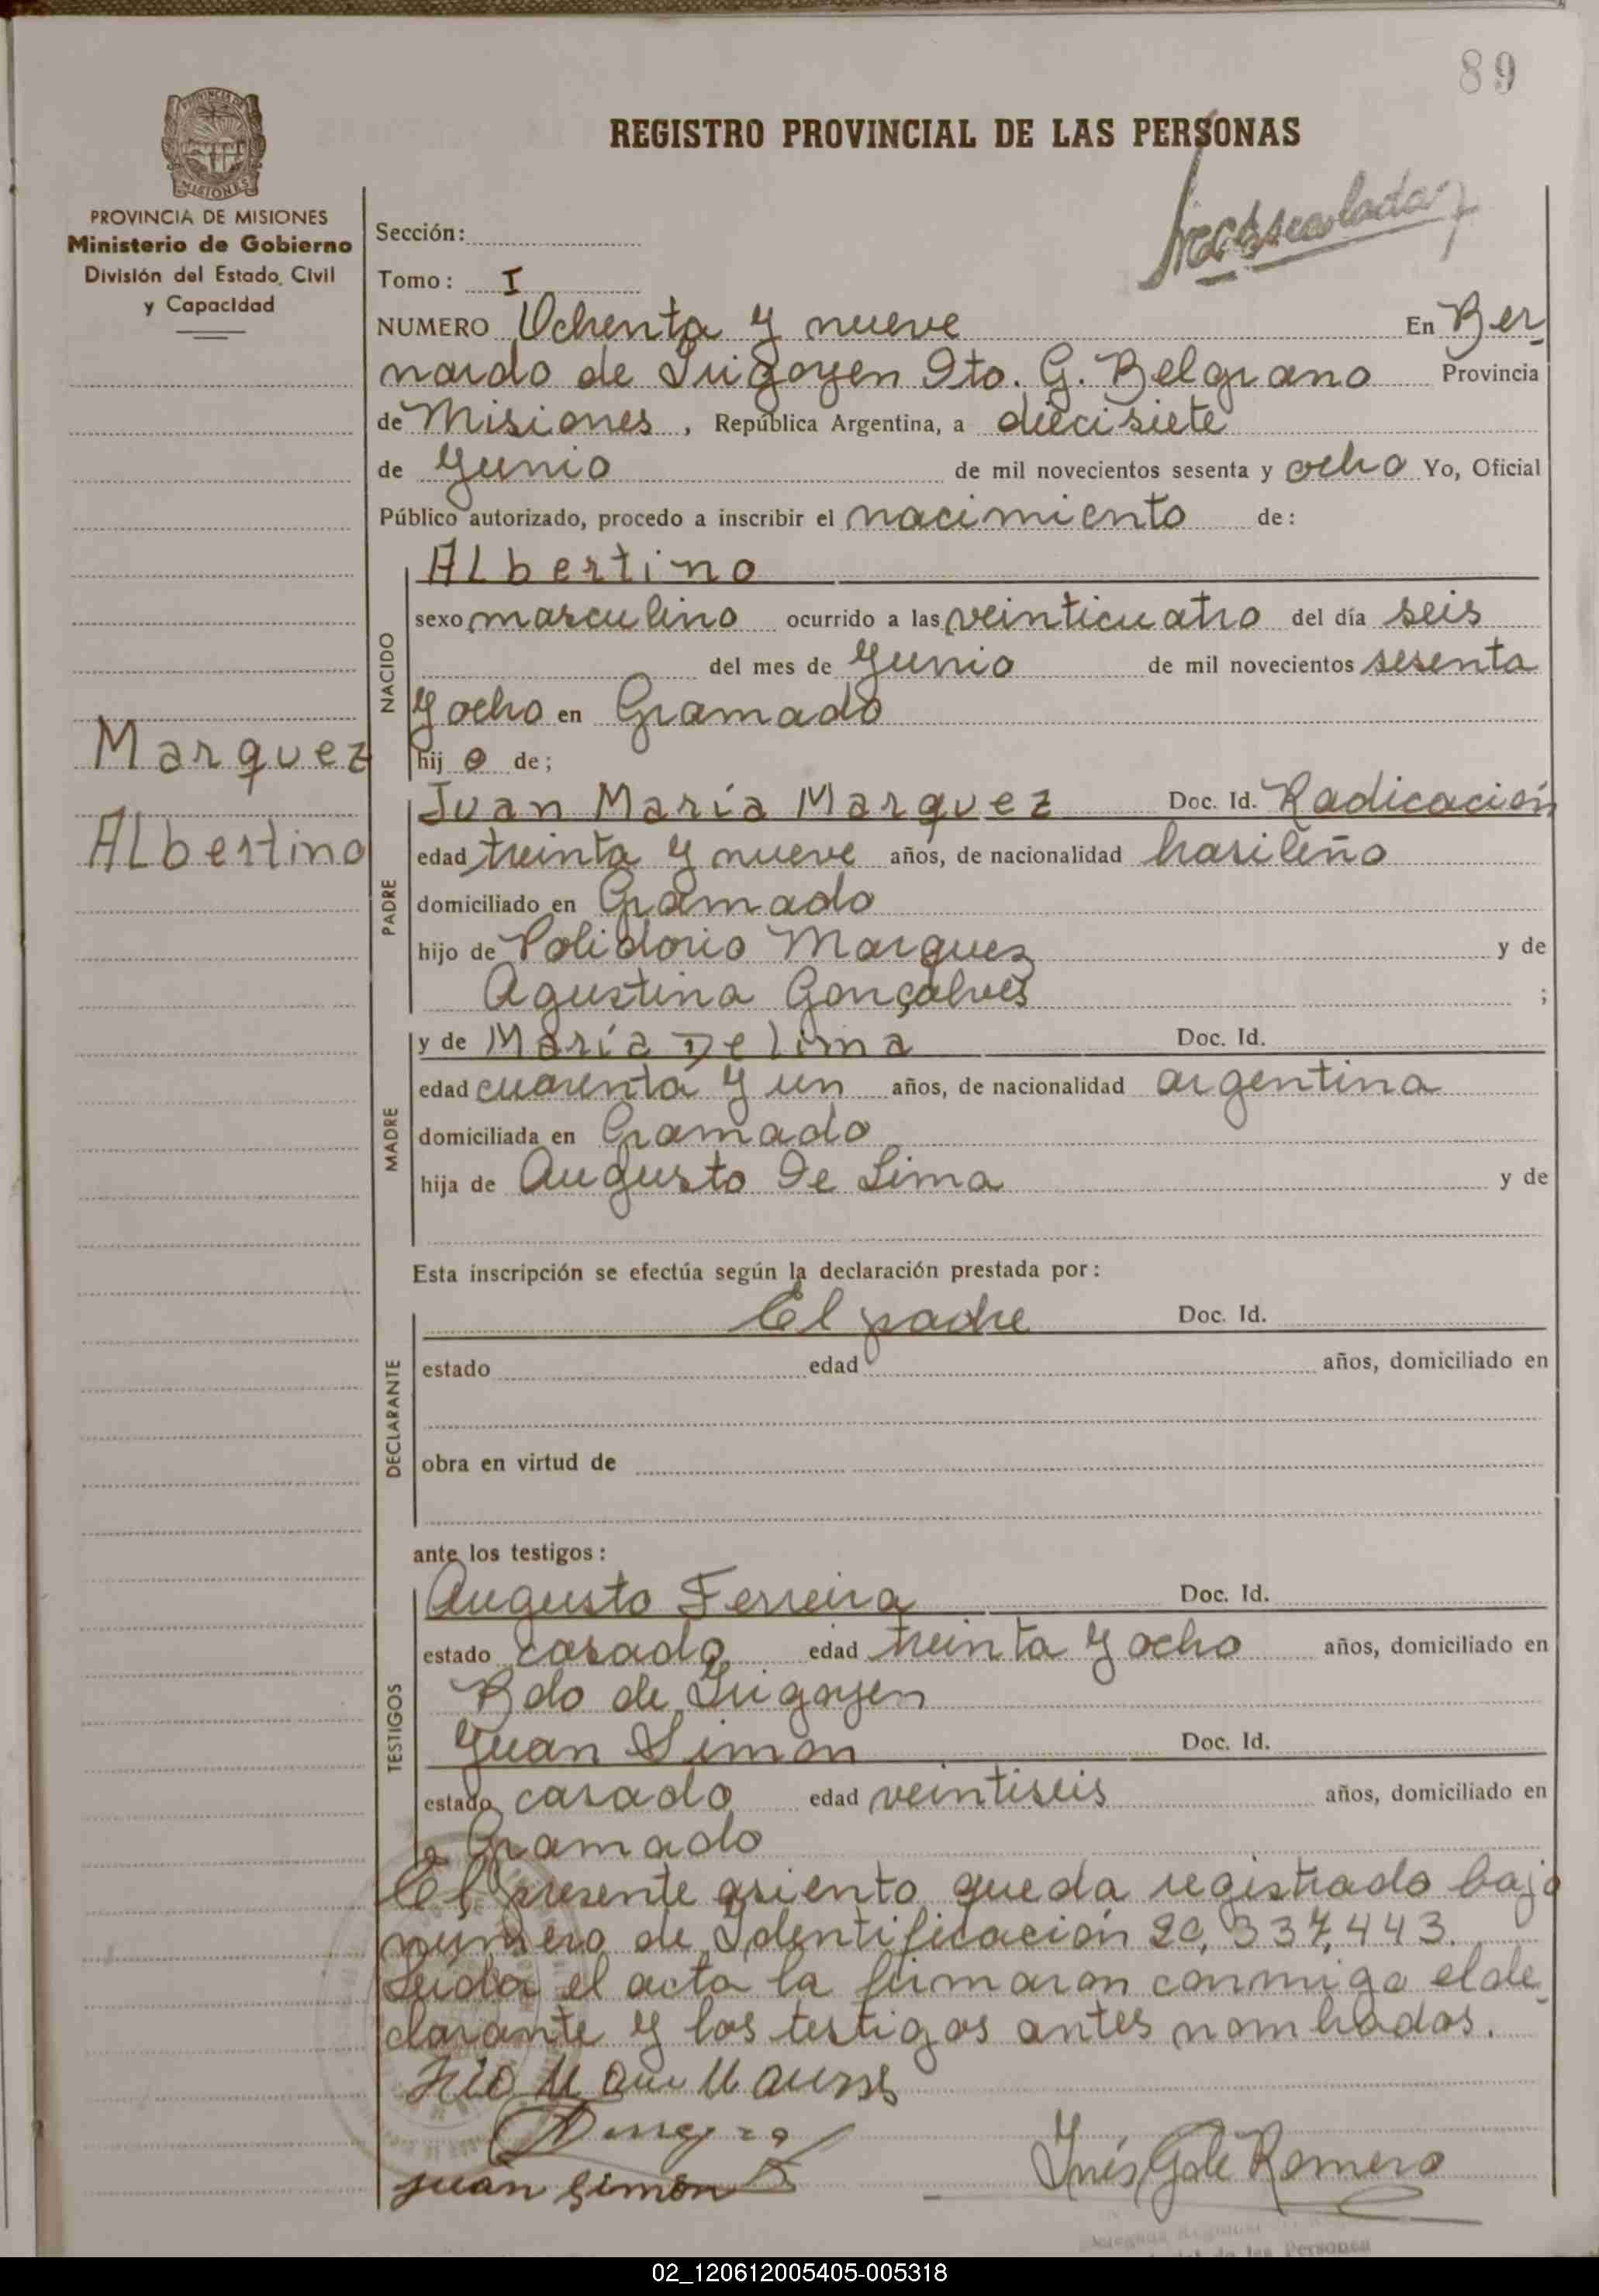 89
REGISTRO PROVINCIAL DE LAS PERSONAS
PROVINCIA DE MISIONES
Ministerio de Gobierno
División del Estado Civil
y Capacidad
Sección:
Tomo: I
NUMERO Ochenta y nueve En Ber
nardo de Irigoyen Dto. G. Belgrano Provincia
de Misiones, República Argentina, a diecisiete
de Junio de mil novecientos sesenta y ocho Yo, Oficial
Público autorizado, procedo a inscribir el nacimiento de:
NACIDO
Albertino
sexo masculino ocurrido a las veinticuatro del día seis
del mes de Junio de mil novecientos sesenta
y ocho en Gramado
hijo de;
Marquez
Albertino
PADRE
Juan María Marquez Doc. Id. Radicación
edad treinta y nueve años, de nacionalidad brasileño
domiciliado en Gramado
hijo de Polidorio Marquez y de
Agustina Gonçalves ;
MADRE
y de María De lima Doc. Id.
edad cuarenta y un años, de nacionalidad argentina
domiciliada en Gramado
hija de Augusto De Lima y de
Esta inscripción se efectúa según la declaración prestada por:
DECLARANTE
El padre Doc. Id.
estado edad años, domiciliado en
obra en virtud de
ante los testigos:
TESTIGOS
Augusto Ferreira Doc. Id.
estado casado edad treinta y ocho años, domiciliado en
Bdo de Irigoyen
Juan Simon Doc. Id.
estado casado edad veintiseis años, domiciliado en
Gramado
El presente asiento queda registrado bajo
número de Identificación 20,337,443.
Leida el acta la firmaron conmigo el de
clarante y los testigos antes nombrados.
juan Simon
Inés G de Romero
de las Personas
02_120612005405-005318